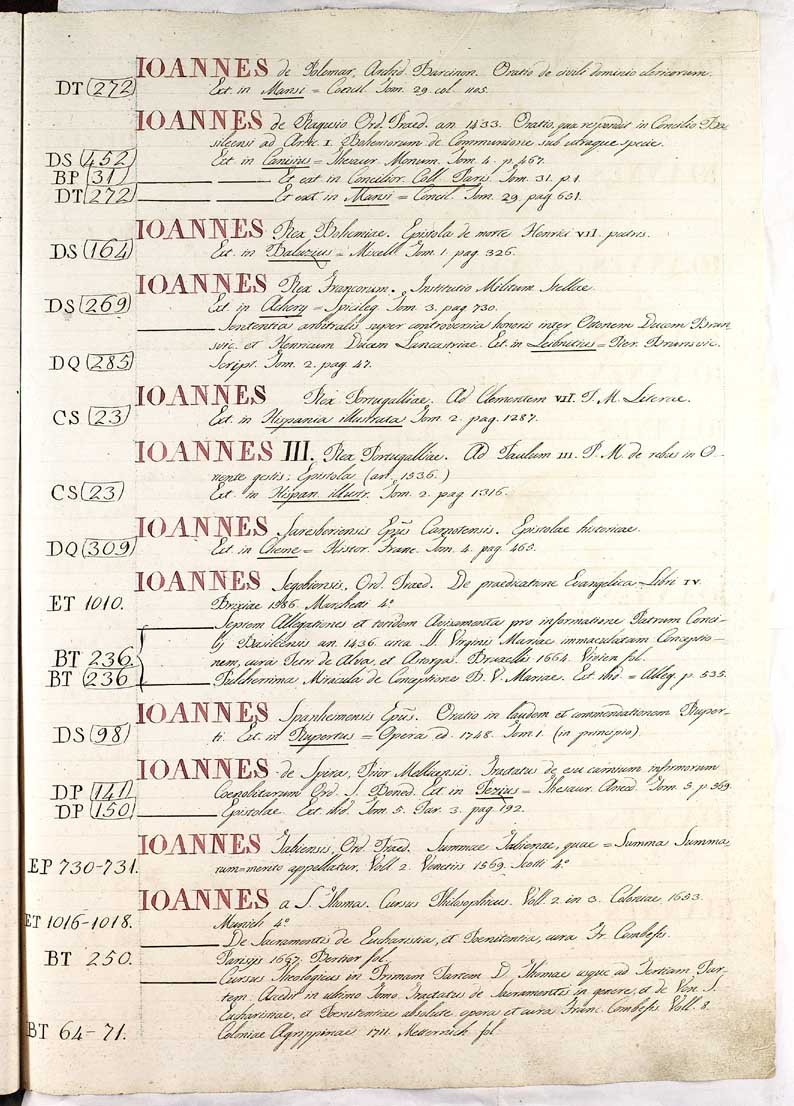 IOANNES de Polomar, Archid. Barcinon. Oratio de civili dominio clericorum.
DT 272 Ext. in Mansi = Concil. Tom. 29. col. 1105.
IOANNES de Ragusio Ord. Praed. an. 1433. Oratio, qua respondit in Concilio Ba-
sileensi ad Artic. I. Bohemorum de Communione sub utraque specie.
DS 452 Ext. in Canisius = Thesaur. Monum. Tom. 4. p. 467.
BP 31 Et ext. in Concilior. Coll. Paris. Tom. 31. p. 1.
DT 272 Et ext. in Mansi = Concil. Tom. 29. pag. 651.
IOANNES Rex Bohemiae. Epistola de morte Henrici VII. patris.
DS 164 Ext. in Baluzius = Miscell. Tom. 1. pag. 326.
IOANNES Rex Francorum. Institutio Militum Stellae.
DS 269 Ext. in Achery = Spicileg. Tom. 3. pag. 730.
Sententia arbitralis super controversia honoris inter Ottonem Ducem Brun
svic. et Henricum Ducem Lancastriae. Ext. in Leibnitius = Rer. Brunsvic.
DQ 285 Script. Tom. 2. pag. 47.
IOANNES Rex Portugalliae. Ad Clementem VII. P. M. Literae.
CS 23 Ext. in Hispania illustrata Tom. 2. pag. 1287.
IOANNES III. Rex Portugalliae. Ad Paulum III. P. M. de rebus in O-
riente gestis; Epistola (an. 1536.)
CS 23 Ext. in Hispan. illustr. Tom. 2. pag. 1316.
IOANNES Saresberiensis Epũs Carnotensis. Epistolae historicae.
DQ 309 Ext. in Chene = Histor. Franc. Tom. 4. pag. 465.
IOANNES Segobiensis, Ord. Praed. De praedicatione Evangelica Libri IV.
ET 1010. Brixiae 1586. Marcheti 4º
Septem Allegationes et totidem Avisamenta pro informatione Patrum Conci-
lij Basileensis an. 1436. circa SS. Virginis Mariae immaculatam Conceptio-
BT 236. nem, cura Petri de Alva, et Astorga. Bruxellis 1664. Vivien fol.
BT 236 Pulcherrima Miracula de Conceptione B. V. Mariae. Ext. ibid. = Alleg. p. 535.
IOANNES Spanheimensis Epũs. Oratio in laudem et commendationem Ruper-
DS 98 ti. Ext. in Rupertus = Opera ed. 1748. Tom. 1. (in principio).
IOANNES de Spira, Prior Mellicensis. Tractatus de esu carnium infirmorum
DP 141 Coenobitarum Ord. S. Bened. Ext. in Pezius = Thesaur. Anecd. Tom. 5. p. 569.
DP 150 Epistolae. Ext. ibid. Tom. 5. Par. 3. pag. 192.
IOANNES Tabiensis, Ord. Praed. Summae Tabienae, quae = Summa Summa
EP 730-731. rum = merito appellatur. Voll. 2. Venetiis 1569. Scotti 4º
IOANNES a S. Thoma. Cursus Philosophicus. Voll. 2. in 3. Coloniae, 1653.
ET 1016-1018. Munich 4º
De Sacramentis de Eucharistia, et Poenitentia, cura Fr. Combefis.
BT 250. Parisiis 1667. Bertier fol.
Cursus Theologicus in Primam Partem D. Thomae usque ad Tertiam Par-
tem. Accedit in ultimo Tomo Tractatus de Sacramentis in genere, et de Ven. S.
Eucharistiae, et Poenitentiae absolute opera et cura Franc. Combefis. Voll. 8.
BT 64-71. Coloniae Agrippinae 1711. Metternich fol.